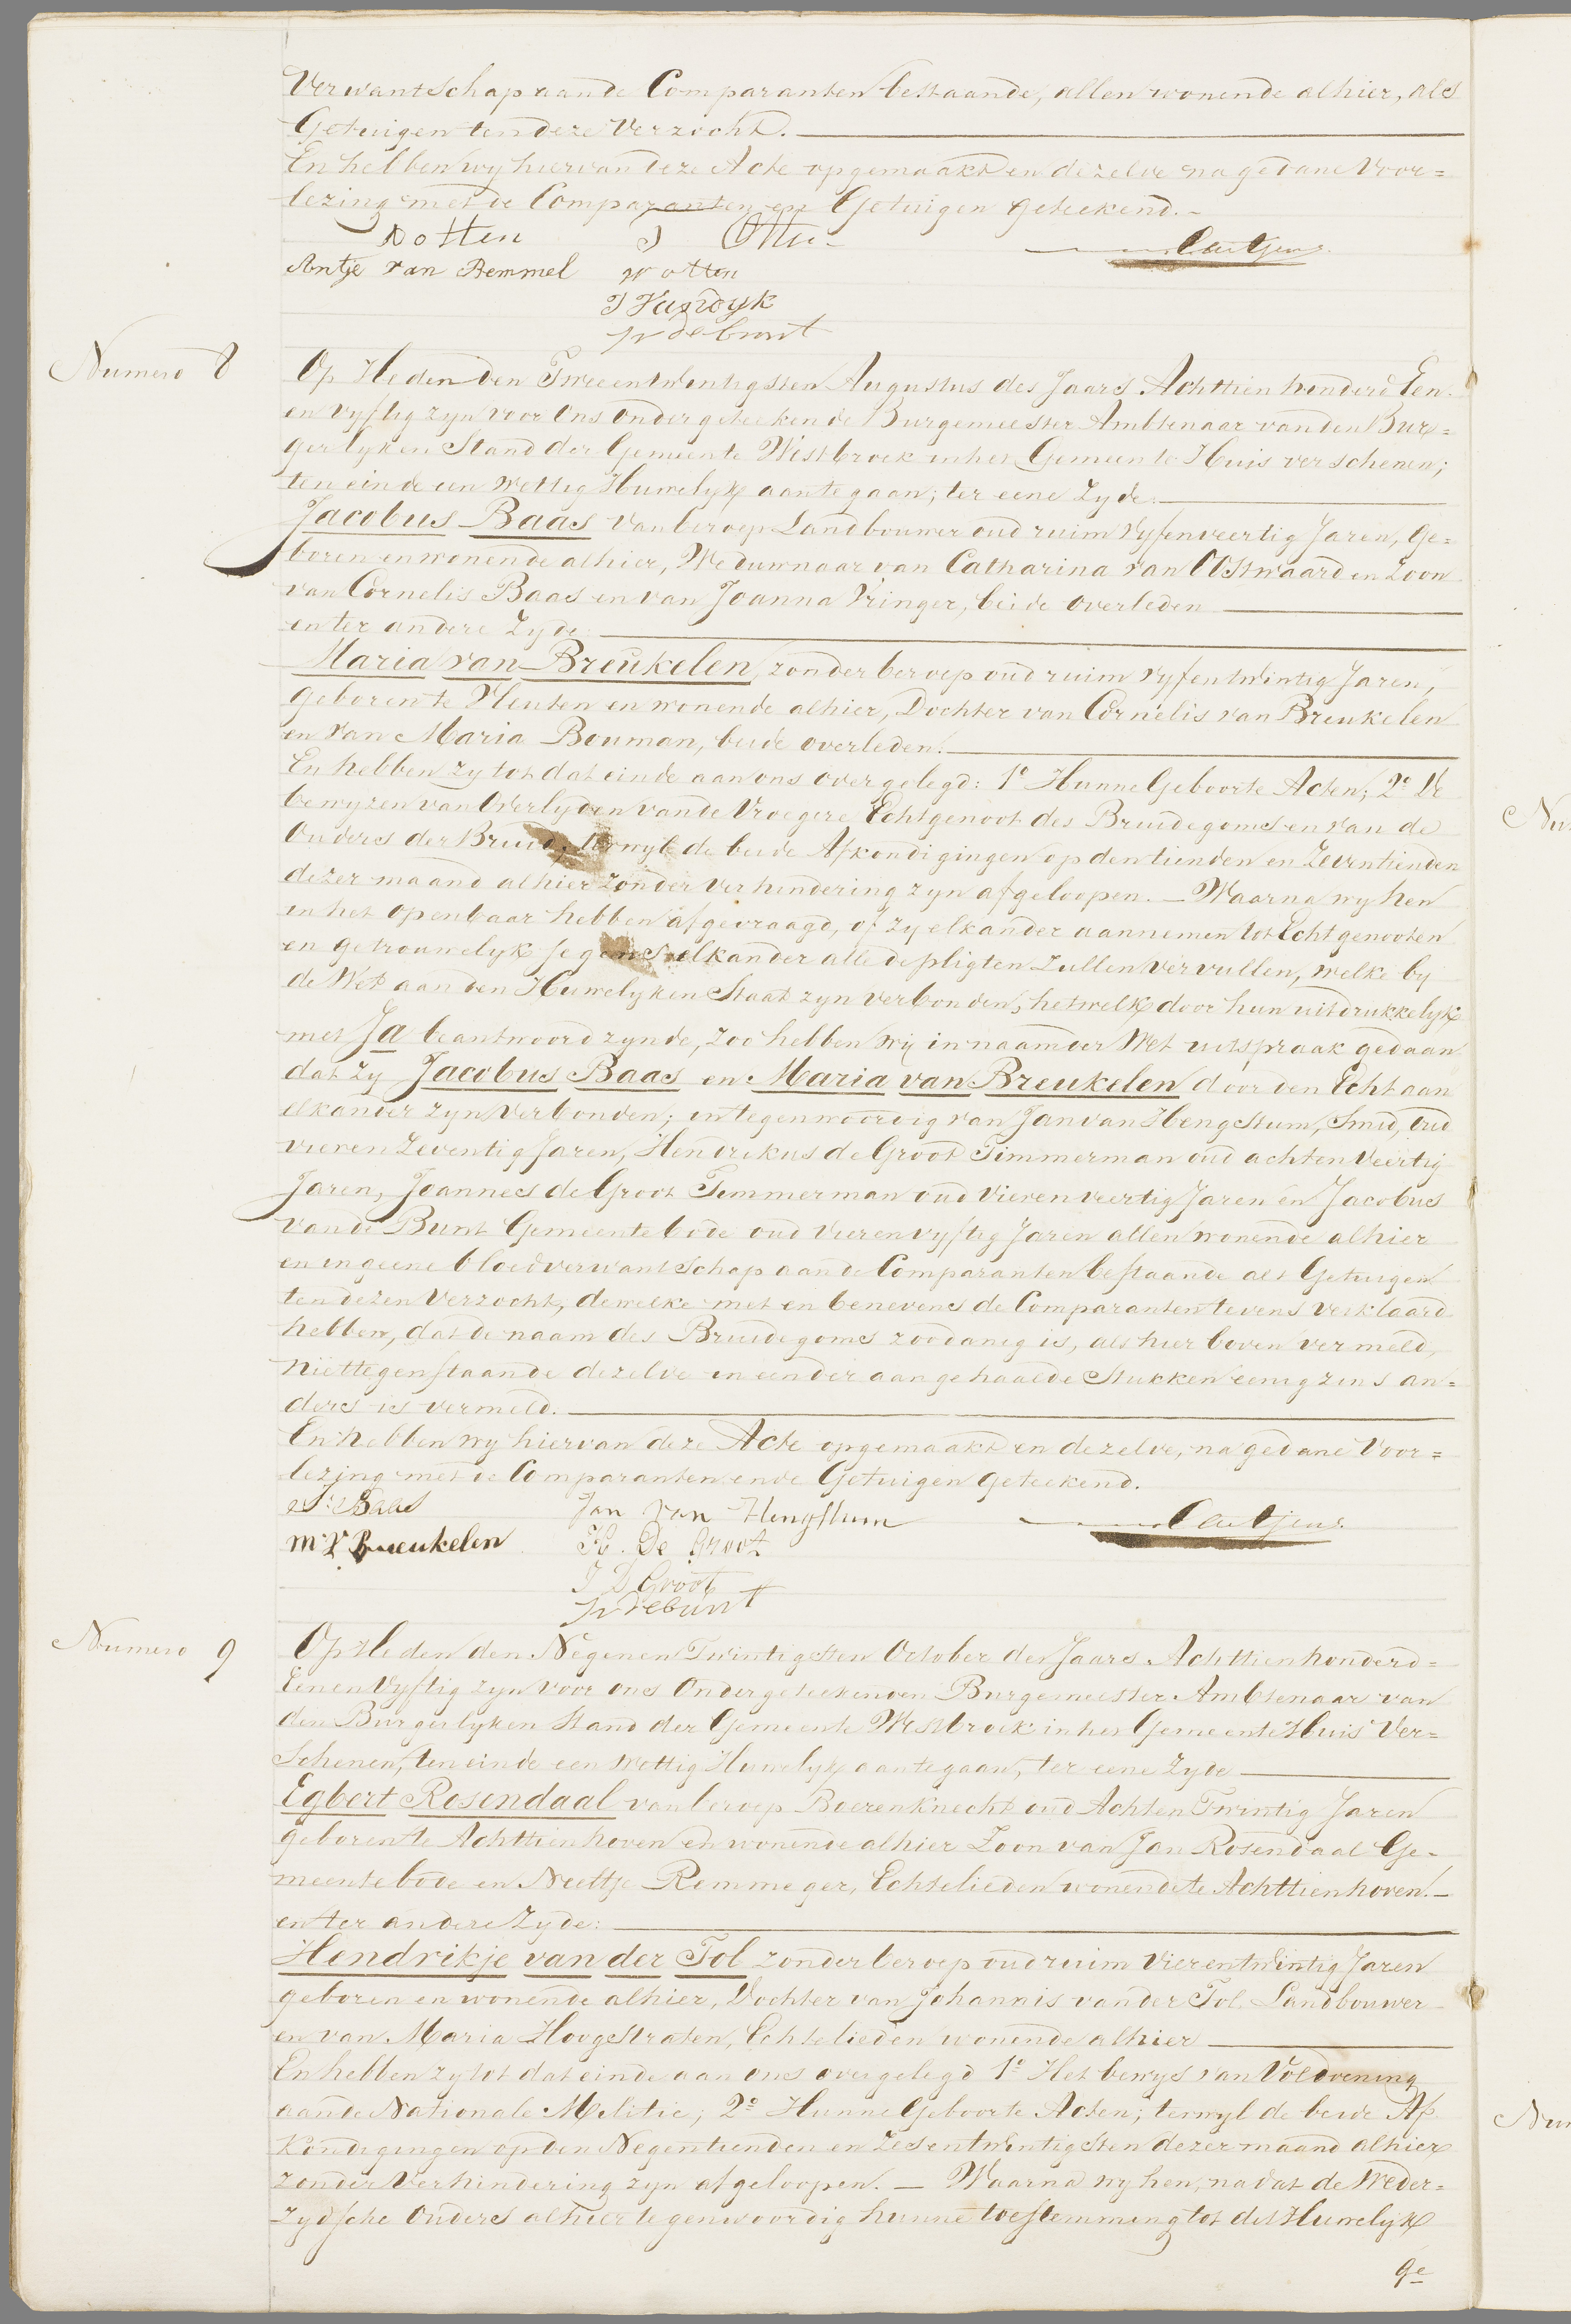 Verwantschap aande Comparanten bestaande, allen wonende alhier, als
Getuigen ten deze Verzocht.
En hebben wy hiervan deze Acte opgemaakt en dezelve na gedane Voor=
lezing met de Comparanten en Getuigen geteekend.
Antje van Hemmel W otten
J Van dyk
Numero 8
Op Heden den Tweeentwintigsten Augustus des Jaars Achttien honderd Een
en vyftig zyn voor Ons Ondergeteekende Burgemeester Ambtenaar van den Bur=
gerlyken Stand der Gemeente Westbroek in het Gemeente Huis verschenen;
ten einde een wettig Huwelyk aan te gaan; ter eene Zyde:
Jacobus Baas van beroep Landbouwer oud ruim vyfenveertig Jaren, Ge=
boren en wonende alhier, Weduwnaar van Catharina van Oostwaard en Zoon
van Cornelis Baas en van Joanna Vringer, beide Overleden
en ter andere Zyde:
Maria van Breukelen, zonder beroep oud ruim vyfentwintig Jaren,
Geboren te Vleuten en wonende alhier, Dochter van Cornelis van Breukelen
en van Maria Bouman, beide Overleden.
En hebben zy tot dat einde aan ons overgelegd: 1e Hunne Geboorte Acten; 2e De
bewyzen van Overlyden van de Vroegere Echtgenoot des Bruidegoms en van de
Ouders der Bruid, terwyl de beide Afkondigingen op den tienden en Zeventienden
dezer maand alhier zonder verhindering zyn afgeloopen. — Waarna wy hen
in het openbaar hebben afgevraagd, of zy elkander aannemen tot Echtgenooten
en getrouwelyk jegens elkander alle de pligten zullen vervullen, welke by
de Wet aan den Huwelyken Staat zyn verbonden, hetwelk door hun uitdrukkelyk
met Ja beantwoord zynde, zoo hebben wij in naam der Wet uitspraak gedaan
dat zy Jacobus Baas en Maria van Breukelen door den Echt aan
elkander zyn verbonden; in tegenwoordig van Jan van Hengstum, Smid, oud
vieren Zeventig Jaren, Hendrikus de Groot Timmerman oud achten Veertig
Jaren, Joannes de Groot Timmerman oud Vieren veertig Jaren en Jacobus
van de Bunt Gemeentebode oud Vieren vyftig Jaren allen wonende alhier
en in geene bloedverwantschap aan de Comparanten bestaande als Getuigen
ten dezen Verzocht, dewelke met en benevens de Comparanten tevens verklaard
hebben, dat de naam des Bruidegoms zoodanig is, als hier boven vermeld,
niettegenstaande dezelve in een der aangehaalde Stukken eenigzins an=
ders is vermeld.
En hebben wy hiervan deze Acte opgemaakt en dezelve, na gedane Voor=
lezing met de Comparanten en de Getuigen geteekend.
J: Baas Jan Van Hengstum
M V Breukelen H. De Groot
J D Groot
Numero 9
Op Heden den Negenen Twintigsten October des Jaars Achttienhonderd=
Eenen Vyftig zyn voor ons Ondergeteekenden Burgemeester Ambtenaar van
den Burgerlyken Stand der Gemeente Westbroek in het Gemeente Huis Ver=
schenen, ten einde een wettig Huwelyk aantegaan, ter eene Zyde
Egbert Rosendaal van beroep Boerenknecht oud Achten Twintig Jaren
geboren te Achttienhoven en wonende alhier Zoon van Jan Rosendaal Ge=
meentebode en Neeltje Remmeger, Echtelieden wonende te Achttienhoven. —
en ter andere Zyde:
Hendrikje van der Tol zonder beroep oud ruim Vierentwintig Jaren
geboren en wonende alhier, Dochter van Johannis van der Tol Landbouwer
en van Maria Hoogstraten, Echtelieden wonende alhier
En hebben zy tot dat einde aan ons overgelegd 1e Het bewys van Voldoening
aan de Nationale Militie; 2e Hunne Geboorte Acten; terwyl de beide Af
kondigingen op den Negentienden en Zesentwintigsten dezer maand alhier
zonder Verhindering zyn afgeloopen. — Waarna wy hen, na dat de Weder=
zydsche Ouders alhier tegenwoordig hunne toestemming tot dit Huwelyk
ge